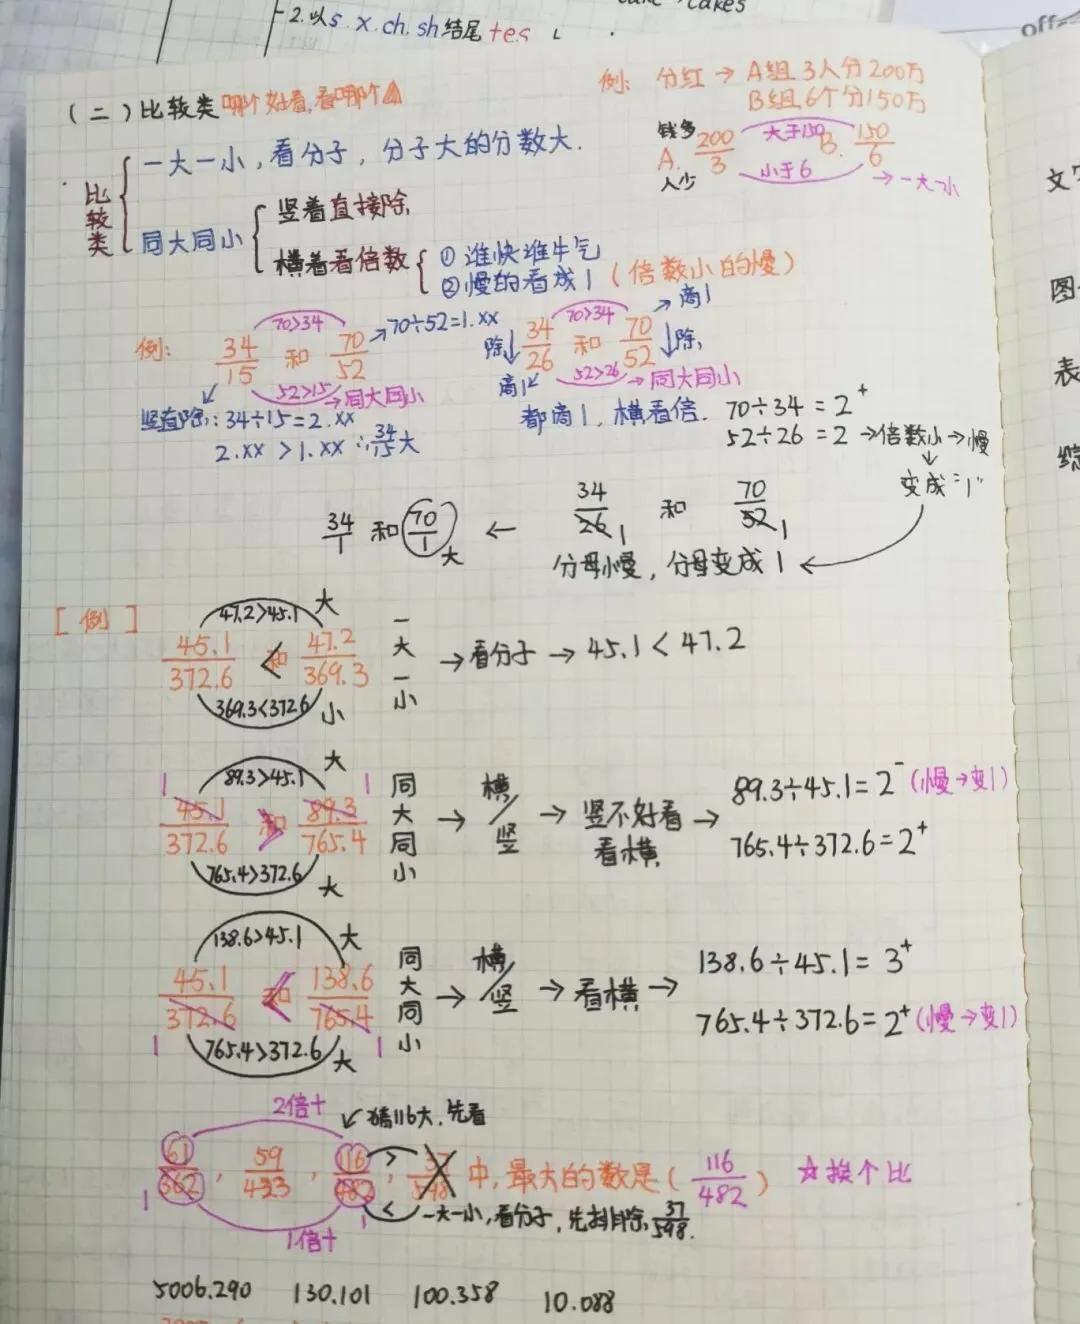 2.以s.x.ch.sh结尾+es
cakes
(二)比较类 哪个好看,看哪个
例: 分红 → A组 3人分200万
B组 6个分150万
比较类
一大一小,看分子,分子大的分数大.
钱多 A. 200/3 人少 大于150 小于6 B. 150/6 → 一大一小
同大同小
竖着直接除
横着看倍数
① 谁快谁牛气
② 慢的看成1(倍数小的慢)
例: 34/15 和 70/52 70>34 52>15 → 同大同小
→ 70÷52=1.xx
竖着除: 34÷15=2.xx
2.xx > 1.xx ∴ 34/15大
除↓ 34/26 和 70/52 ↓除 70>34 52>26 → 同大同小
→ 商1
商1
都商1,横看倍. 70÷34=2⁺
52÷26=2 → 倍数小 → 慢
↓
变成"1"
34/26 1 和 70/52 1
分母慢,分母变成1
← 34/1 和 70/1 大
[例]
47.2>45.1 大
45.1/372.6 < 和 47.2/369.3 一大一小 → 看分子 → 45.1<47.2
369.3<372.6 小
89.3>45.1 大
1 45.1/372.6 > 和 89.3/765.4 1 同大同小 → 横/竖 → 竖不好看 看横 →
765.4>372.6 大
89.3÷45.1=2⁻(慢→变1)
765.4÷372.6=2⁺
138.6>45.1 大
45.1/372.6 1 < 和 138.6/765.4 1 同大同小 → 横/竖 → 看横 →
765.4>372.6 大
138.6÷45.1=3⁺
765.4÷372.6=2⁺(慢→变1)
2倍+ ↙猜116大,先看
61/362, 59/433, 116/482 , 37/598 中,最大的数是(116/482) ☆挨个比
1 1
1倍+ 一大一小,看分子,先排除37/598.
5006.290 130.101 100.358 10.088
文
图
表
综